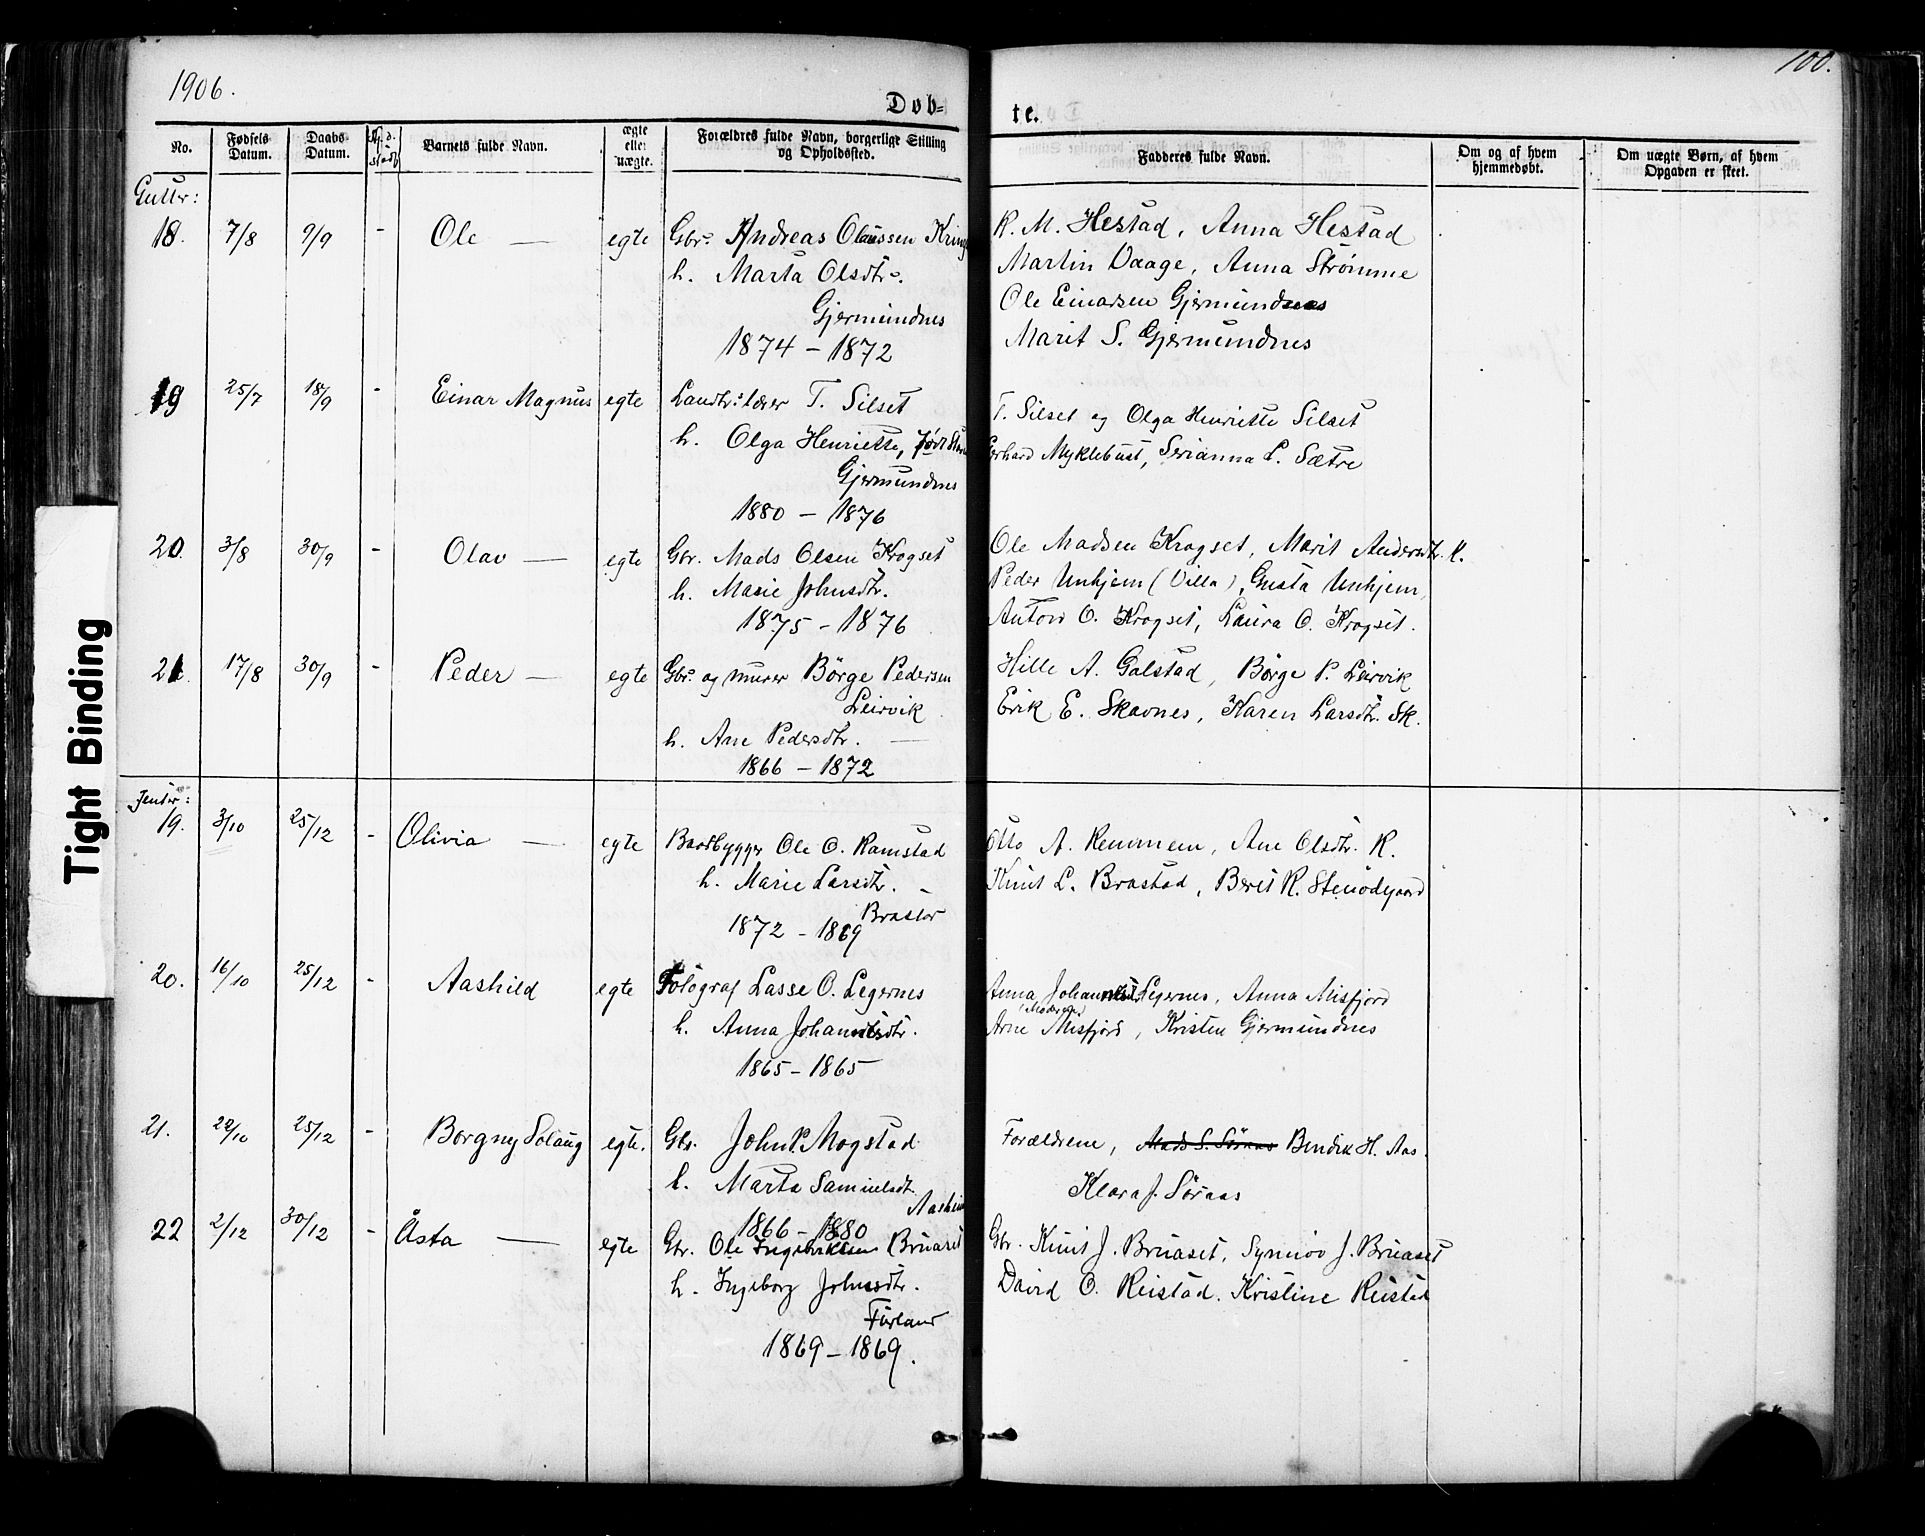 1906.
100.
Døb=
te.
No.
Fødsels Datum.
Daabs Datum.
Barnets fulde Navn.
ægte eller uægte.
Forældres fulde Navn, borgerlige Stilling og Opholdssted.
Fadderes fulde Navn.
Om og af hvem hjemmedøbt.
Om uægte Børn, af hvem Opgaven er skeet.
Gutter:
18. 7/8 9/9 - Ole — egte Gbr. Andreas Olaussen
h. Marta Olsdtr.
Gjermundnes
1874 - 1872
K. M. Hestad, Anna Hestad
Martin Vaage, Anna Strømme
Ole Einarsen Gjermundnes
Marit S. Gjermundnes
19 25/7 18/9 - Einar Magnus egte Landbr. lærer T. Silset
h. Olga Henriette, født
Gjermundnes
1880 - 1876
T. Silset og Olga Henriette Silset
Gerhard Myklebust, Serianna L. Sætre
20. 3/8 30/9 - Olav — egte Gbr. Mads Olsen Krogset
h. Marie Johnsdtr.
1875 - 1876
Ole Madsen Krogset, Marit Andersdtr. K.
Peder Unhjem (Villa), Gusta Unhjem,
Anton O. Krogset, Laura O. Krogset.
21. 17/8 30/9 - Peder — egte Gbr. og murer Börge Pedersen
Leirvik
h. Ane Pedersdtr. —
1866 - 1872
Hille A. Galstad, Børge P. Leirvik
Erik E. Skavnes, Karen Larsdtr. Sk.
Tight Binding
Jenter:
19. 3/10 25/12 - Olivia — egte Baadbygger Ole O. Ramstad
h. Marie Larsdtr. -
Brastad
1872 - 1869
Otto A. Remmem, Ane Olsdtr. R.
Knut L. Brastad, Berit K. Stenødegaard
20. 16/10 25/12 - Aashild egte Fotograf Lasse O. Legernes
h. Anna Johannesdtr.
1865 - 1865
Anna Johannesdtr Legernes, Anna Misfjord
(Moderen)
Arne Misfjord, Kristen Gjermundnes
21. 22/10 25/12 - Borgny Solaug egte. Gbr. John P. Mogstad
h. Marta Samuelsdt.
Aasheim
1866 - 1880
Forældrene, Mads S. Søraas Bendik H. Aas.
Klara J. Søraas
22 2/12 30/12 - Åsta — egte Gbr. Ole Ingebriktsen Bruaset
h. Ingeborg Johnsdtr.
Fürland
1869 - 1869.
Gbr. Knut J. Bruaset, Synnøv J. Bruaset
David O. Reistad. Kristine Reistad